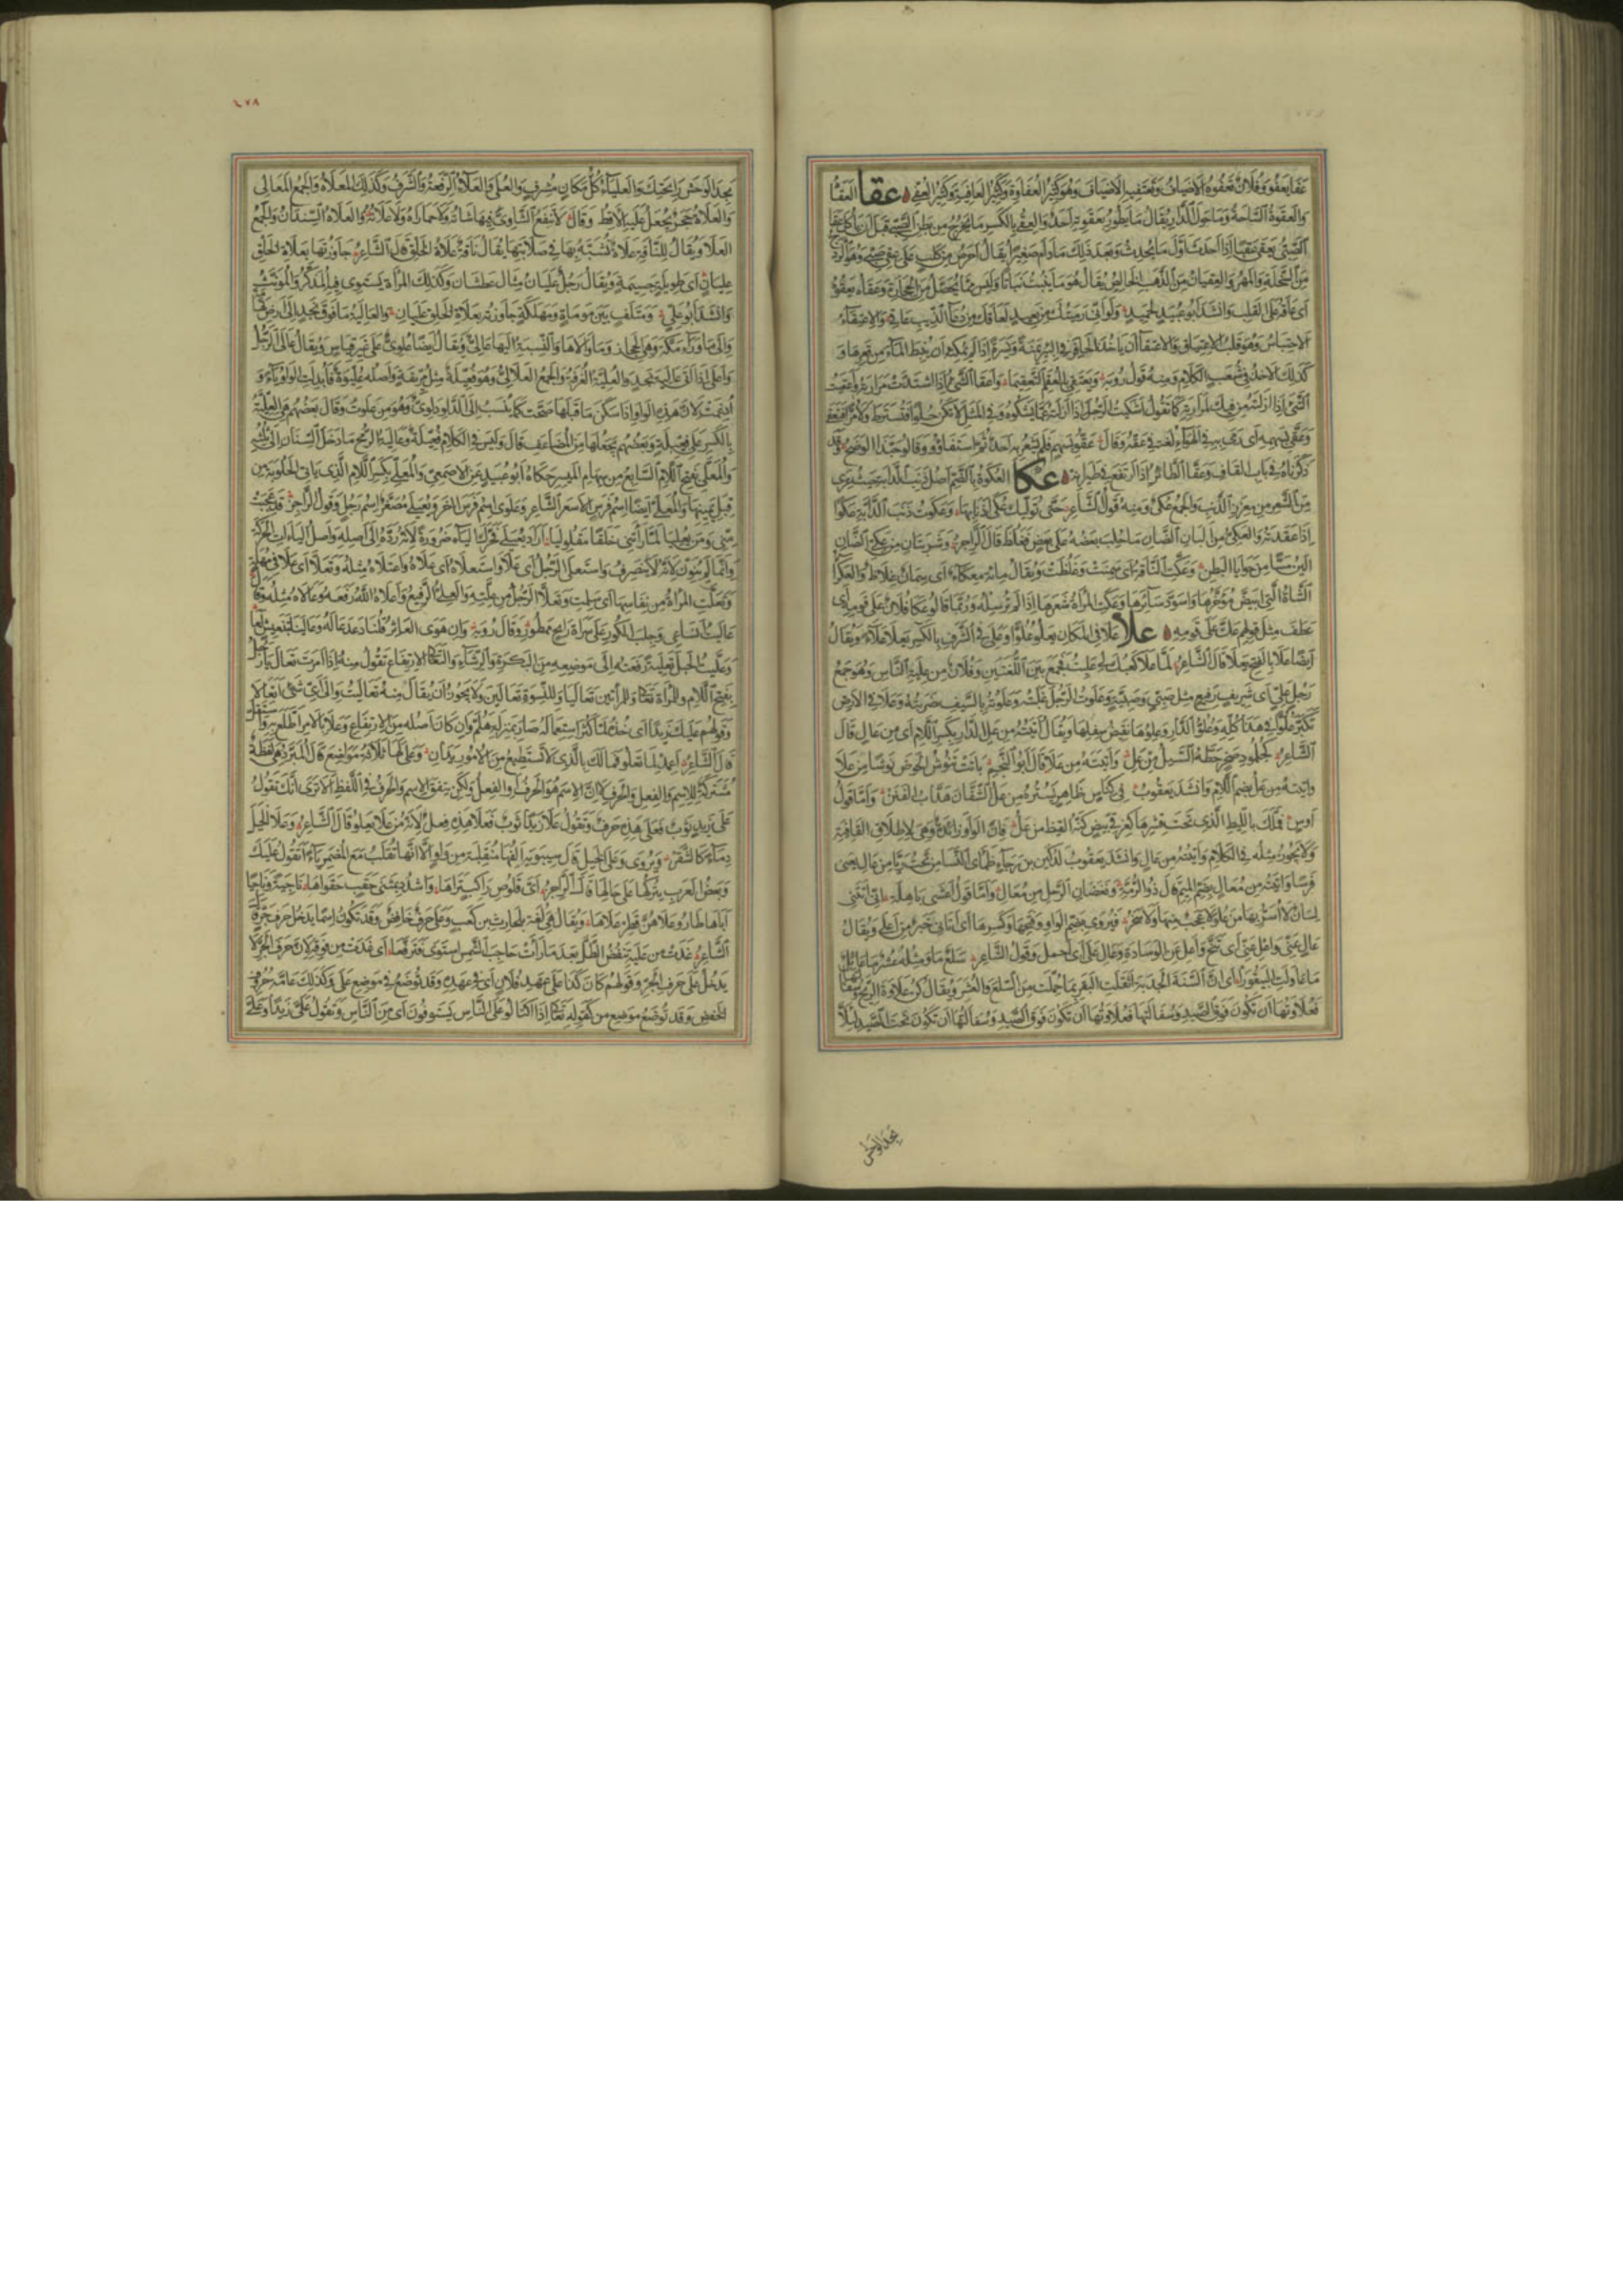 عفا يعفو وفلان تعفوه الاضياف وتعتفيه الاضياف وهو كثير العفاة وكثير العافية وكثير العفى عقا العقا
والعقوة الساحة وما حول الدار يقال ما يطور بعقوته احد والعقي بالكسر ما يخرج من بطن الصبي قبل ان ياكل عقى
الصبي يعقي عقيا اذا احدث اول ما يحدث وبعد ذلك ما دام صغيرا يقال احرص من كلب على عقي صبي وهو الردج
من السخلة والمهر والعقيان من الذهب الخالص يقال هو ما ينبت نباتا وليس مما يحصل من الحجارة وعقاه يعقوه
اي عاقه على القلب وانشد ابو عبيد لحميد ولو اني رميتك من بعيد لعاقك من دعاء الذيب عاق والاعتقاء
الاحتباس وهو قلب الاعتياق والاعتقاء ان ياخذ الحافر في البئر يمنة ويسرة اذا لم يمكنه ان ينبط الماء من قعرها و
كذلك الاخذ في شعب الكلام ومنه قول رؤبة ويعتقي بالعقم التعقيما واعقى الشيء اذا اشتدت مرارته واعقيت
الشيء اذا ازلته من فيك لمرارته كما تقول اشكيت الرجل اذا ازلته عما يشكوه وفي المثل لا تكن حلوا فتسترط ولا مرا فتعقى
وعقى بسهمه اي رمى به في الهواء لغة في عقه وقال عقوا بسهم فلم يشعر به احد ثم استفاؤا وقالوا حبذا الوضح وقد
ذكرناه في باب القاف وعقا الطائر اذا ارتفع في طيرانه عكا العكوة بالضم اصل ذنب الدابة حيث عري
من الشعر من مغرز الذنب والجمع عكى ومنه قول الشاعر حتى توليك عكى اذنابها وعكوت ذنب الدابة عكوا
اذا عقدته والعكي من البان الضان ما حلب بعضه على بعض فغلظ قال الراجز وشربتان من عكي الضان
الين مسا من حوايا البطن وعكت الناقة اي سمنت وغلظت ويقال مائة معكاء اي سمان غلاظ والعكواء
الشاة التي ابيض مؤخرها واسود سائرها وعكت المراة شعرها اذا لم ترسله وربما قالوا عكا فلان على قومه اي
عطف مثل قولهم عك على قومه علا علا في المكان يعلو علوا وعلي في الشرف بالكسر يعلى علاء ويقال
ايضا علا بالفتح يعلى قال الشاعر لما علا كعبك لي عليت فجمع بين اللغتين وفلان من علية الناس وهو جمع
رجل علي اي شريف رفيع مثل صبي وصبية وعلوت الرجل غلبته وعلوته بالسيف ضربته وعلا في الارض
تكبر علوا في هذا كله وعلو الدار وعلوها نقيض سفلها ويقال اتيته من عل الدار بكسر اللام اي من عال قال
الشاعر كجلمود صخر حطه السيل من عل واتيته من علا قال ابو النجم باتت تنوش الحوض نوشا من علا
واتيته من عل بضم اللام وانشد يعقوب في كناس ظاهر يستره من عل الشفان هداب الفنن واما قول
اوس فملك بالليط الذي تحت قشرها كغرقئ بيض كنه القيض من عل فان الواو زائدة وهي لاطلاق القافية
ولا يجوز مثله في الكلام واتيته من عال وانشد يعقوب لدكين بن رجاء ظماي النسا من تحت ريا من عال يعني
فرسا واتيته من معال بضم الميم قال ذو الرمة ونغضان الرحل من معال واما قول اعشى باهلة اني اتتني
لسان لا اسر بها من علو لا عجب منها ولا سخر فيروى بضم الواو وفتحها وكسرها اي اتاني خبر من اعلى ويقال
عال عني واعل عني اي تنح واعل عن الوسادة وعال علي اي احمل وقول الشاعر سلع ما ومثله عشر ما عائل
ما وعالت البيقورا اي ان السنة الجدبة اثقلت البقر بما حملت من السلع والعشر ويقال كن علاوة الريح وسفالتها
فعلاوتها ان تكون فوق الصيد وسفالتها ان تكون تحت الصيد لئلا
يجد الوحش
٤٧٨
يجد الوحش رايحتك والعلياء كل مكان مشرف والعلى والعلاء الرفعة والشرف وكذلك المعلاة والجمع المعالي
والعلاة حجر يجعل عليه الاقط وقال لا ينفع الشاوي فيها شاته ولا حماراه ولا علاته والعلاة السندان والجمع
العلا ويقال للناقة علاة تشبه بها في صلابتها يقال ناقة علاة الخلق قال الشاعر جاوزتها بعلاة الخلق
عليان اي طويلة جسيمة ويقال رجل عليان مثال عطشان وكذلك المراة يستوي فيه المذكر والمؤنث
وانشد ابو علي ومتلف بين موماة ومهلكة جاوزته بعلاة الخلق عليان والعالية ما فوق نجد الى ارض تهامة
والى ما وراء مكة وهي الحجاز وما والاها والنسبة اليها عالي ويقال ايضا علوي على غير قياس ويقال عالى الرجل
واعلى اذا اتى عالية نجد والعلية الغرفة والجمع العلالي وهو فعيلة مثل مريقة واصله عليوة فابدلت الواو ياء و
ادغمت لان هذه الواو اذا سكن ما قبلها صحت كما ينسب الى الدلو دلوي وهو من علوت وقال بعضهم هي العلية
بالكسر على فعيلة وبعضهم يجعلها من المضاعف قال وليس في الكلام فعيلة وعالية الرمح ما دخل السنان الى ثلثه
والمعلى بفتح اللام السابع من سهام الميسر حكاه ابو عبيد عن الاصمعي والمعلي بكسر اللام الذي ياتي الحلوبة من
قبل يمينها والمعلى ايضا اسم فرس الاسعر الشاعر وعلوى اسم فرس اخر ويعيلى مصغر اسم رجل وقول الراجز قد عجبت
مني ومن يعيليا لما راتني خلقا مقلوليا اراد يعيلى فحرك الياء ضرورة لانه رده الى اصله واصل الياءات الحركة
وانما لم ينون لانه لا ينصرف واستعلى الرجل اي علا واستعلاه اي علاه واعتلاه مثله وتعلى اي علا في مهلة
وتعلت المراة من نفاسها اي سلمت وتعلى الرجل من علته والعلي الرفيع واعلاه الله رفعه وعالاه مثله وقال
عاليت انساعي وجلب الكور على سراة رايح ممطور وقال رؤبة وان هوى العاثر قلنا دعدعا له وعالينا بتنعيش لعا
وعليت الحبل تعلية رفعته الى موضعه من البكرة والرشاء والتعالي الارتفاع تقول منه اذا امرت تعال يا رجل
بفتح اللام وللمراة تعالي وللمراتين تعاليا وللنسوة تعالين ولا يجوز ان يقال منه تعاليت والى اي شيء اتعالى
وقولهم عليك زيدا اي خذه لما كثر استعماله صار بمنزلة هلم وان كان اصله من الارتفاع وعلا بالامر اضطلع به واستقل
قال الشاعر اعمد لما تعلو فما لك بالذي لا تستطيع من الامور يدان وعلى لها ثلاثة مواضع قال المبرد هي لفظة
مشتركة للاسم والفعل والحرف لا ان الاسم هو الحرف او الفعل ولكن يتفق الاسم والحرف في اللفظ الا ترى انك تقول
على زيد ثوب فعلى هذه حرف وتقول علا زيدا ثوب فعلا هذه فعل لانه من علا يعلو قال الشاعر وعلا الخيل
دماء كالشقر ويروى وعلى الخيل قال سيبويه الفها منقلبة من واو الا انها تقلب مع المضمر ياء تقول عليك
وبعض العرب يتركها على حالها قال الراجز اي قلوص راكب تراها واشدد بمثنى حقب حقواها ناجية وناجيا
اباها طاروا علاهن فطر علاها ويقال هي لغة بلحارث بن كعب وعلى حرف خافض وقد تكون اسما يدخل حرف جر قال
الشاعر غدت من عليه تنفض الطل بعد ما رات حاجب الشمس استوى فترفعا اي غدت من فوقه لان حرف الجر لا
يدخل على حرف الجر وقولهم كان كذا على عهد فلان اي في عهده وقد توضع في موضع عن وكذلك عامة حروف
الخفض وقد توضع موضع من كقوله تعالى اذا اكتالوا على الناس يستوفون اي من الناس وتقول علي زيدا وعلي